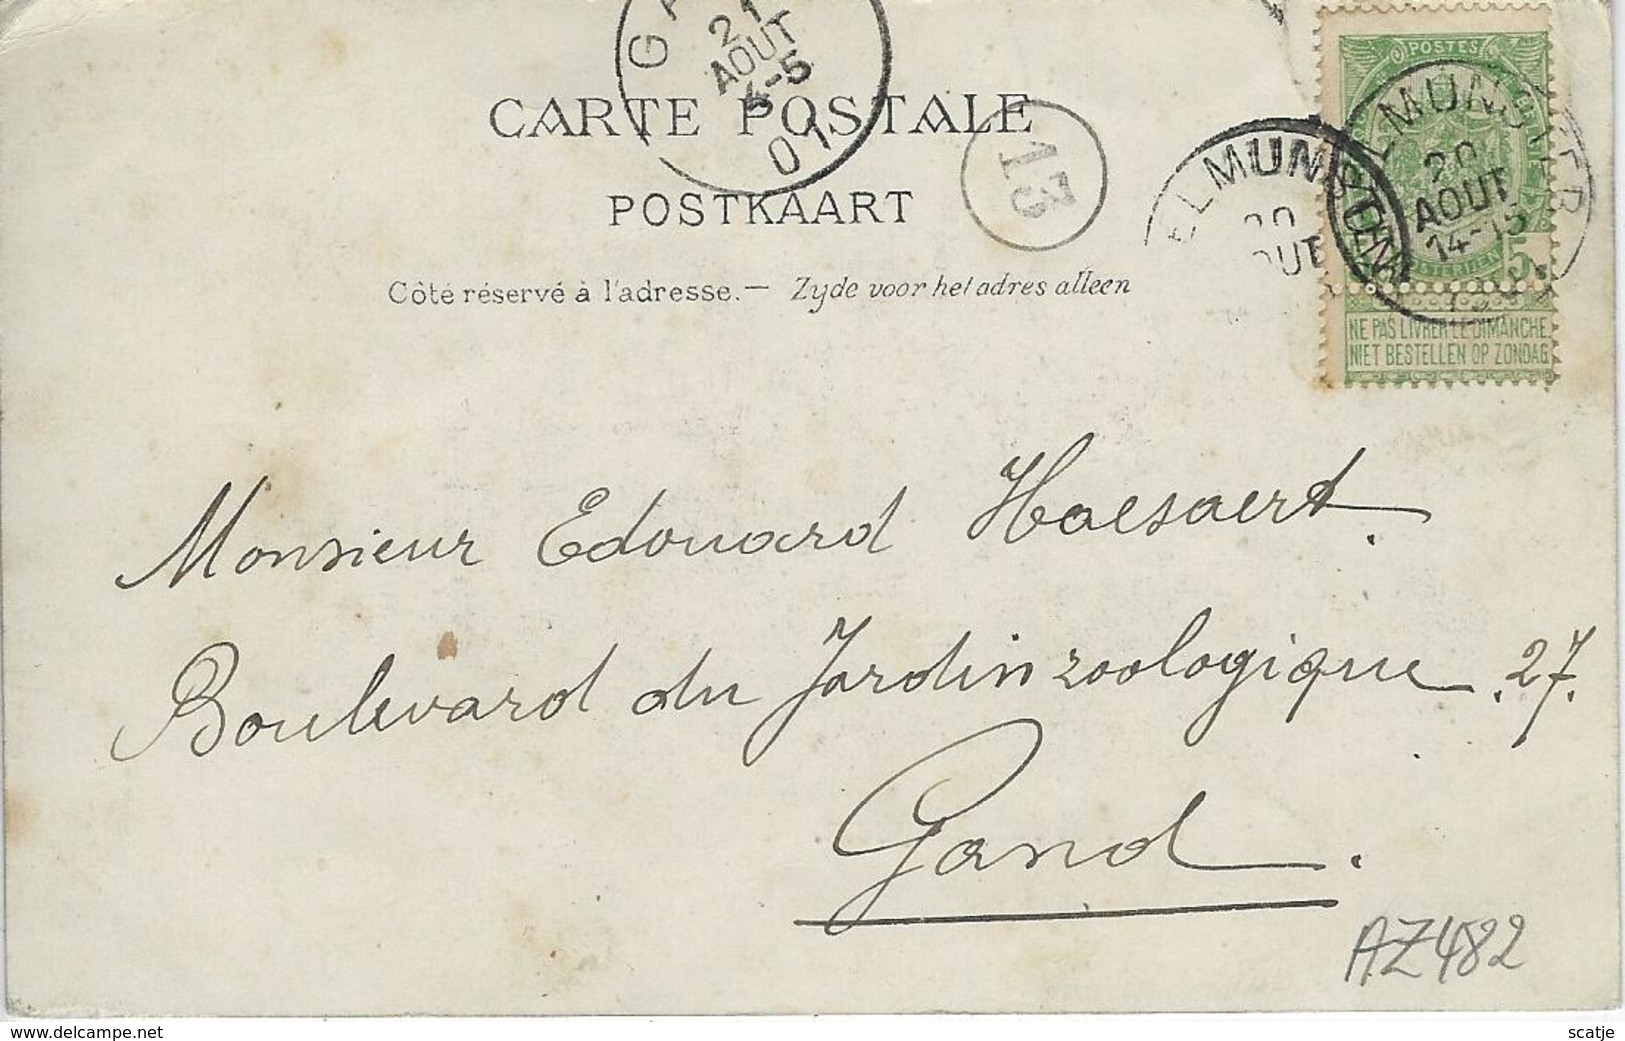 GA
21
AOUT
4-5
01
CARTE POSTALE
13
POSTKAART
Côté réservé à l'adresse.— Zyde voor het adres alleen
ELMUNSTER
20
OUT
POSTES
ELMUNSTER
20
AOUT
14-15
5
NE PAS LIVRER LE DIMANCHE
NIET BESTELLEN OP ZONDAG
Monsieur Edouard Haesaert.
Boulevard du Jardin zoologique. 27.
Gand.
AZ482
www.delcampe.net
scatje